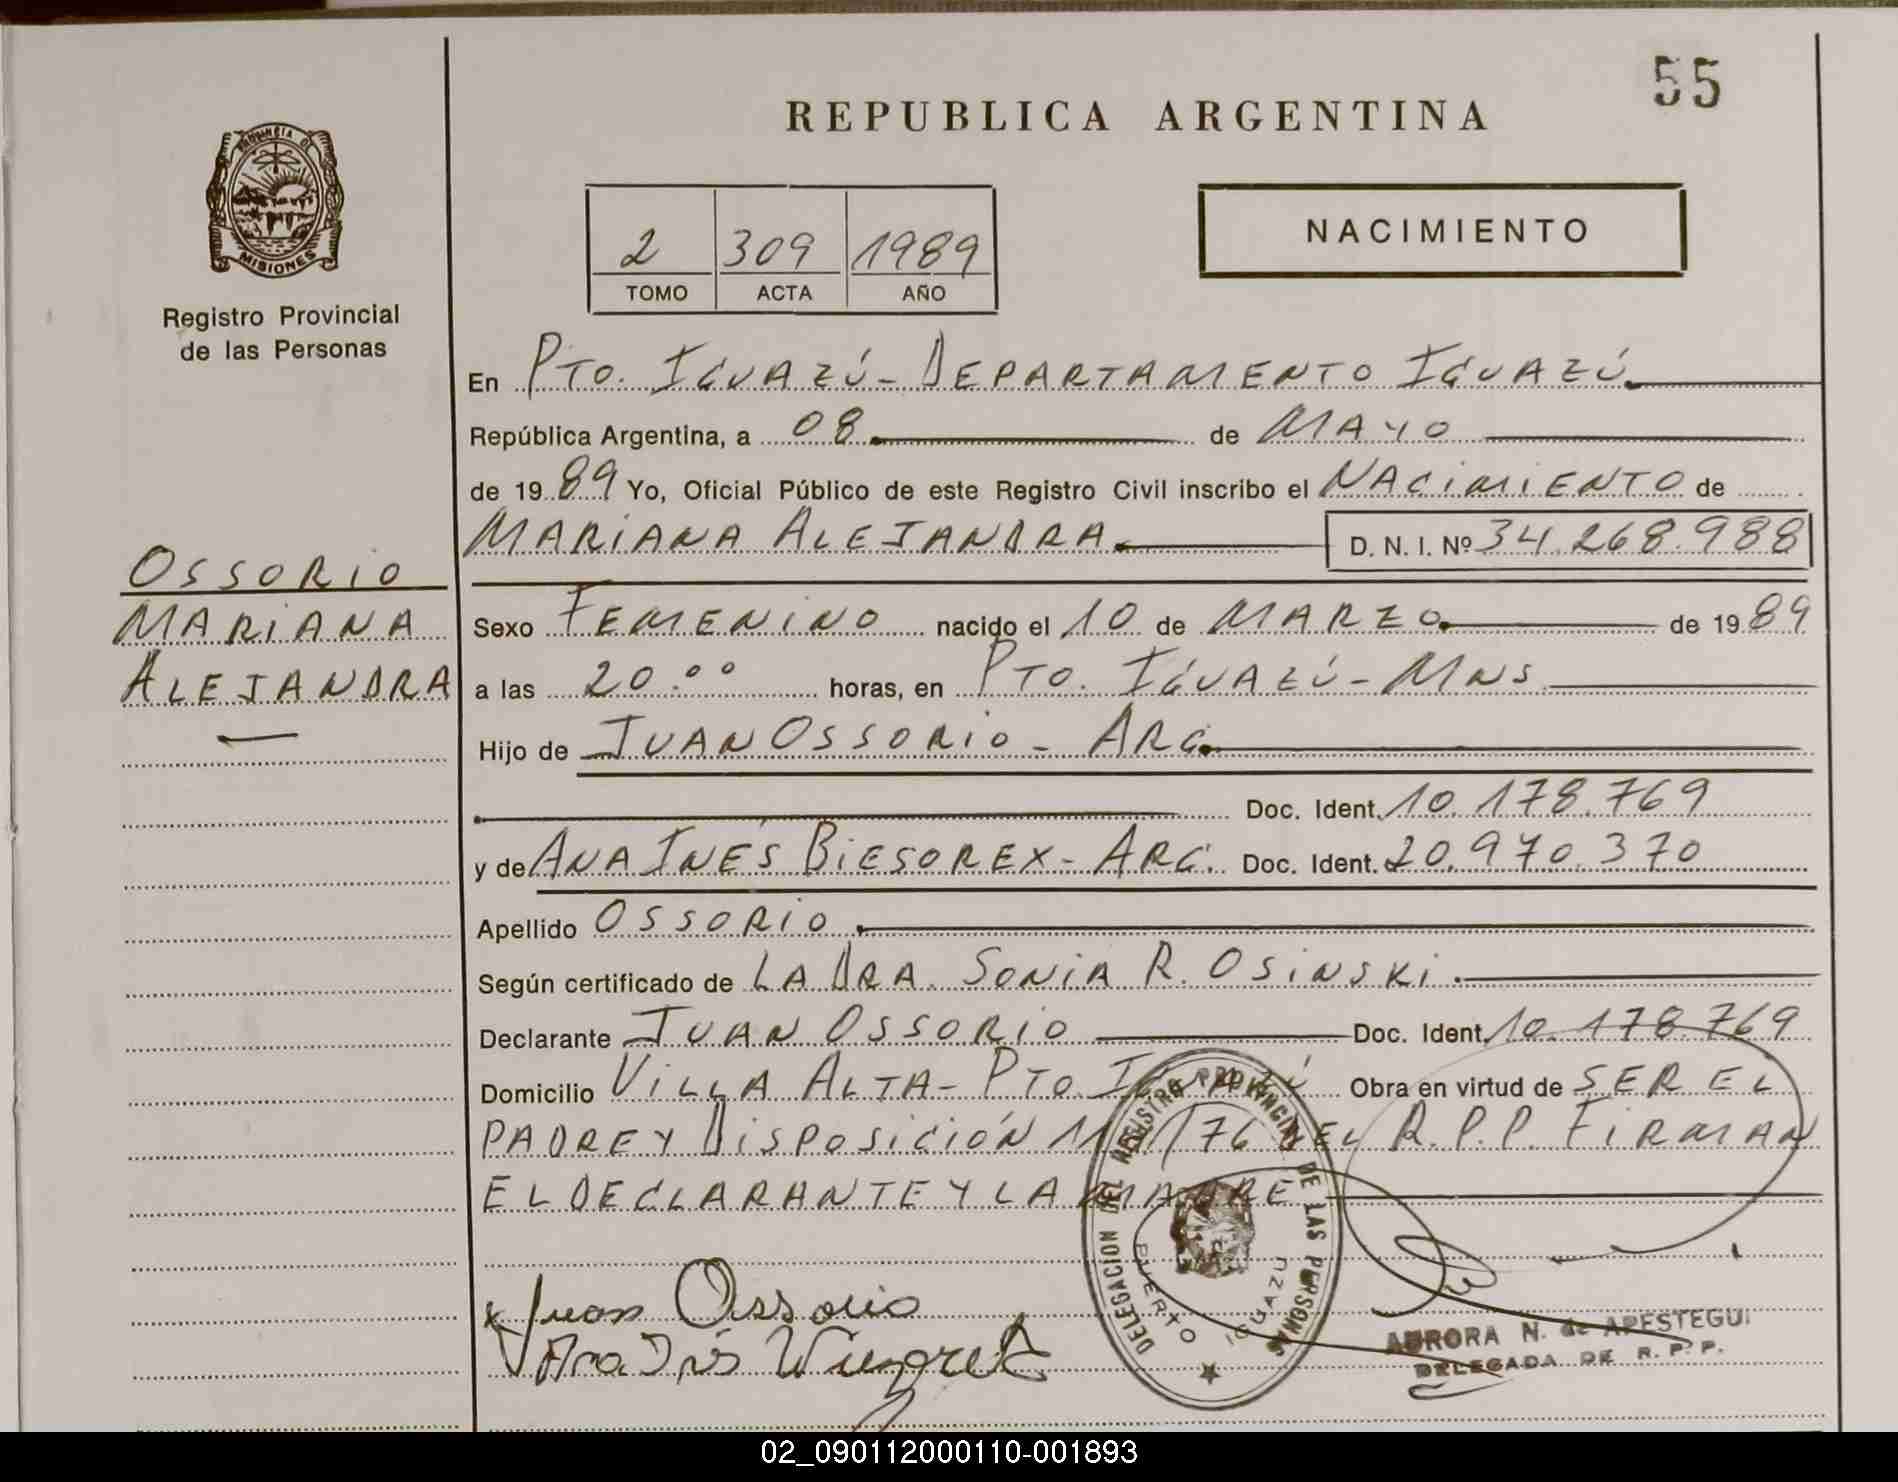 55
REPUBLICA ARGENTINA
PROVINCIA DE
MISIONES
Registro Provincial
de las Personas
2 309 1989
TOMO ACTA AÑO
NACIMIENTO
En PTO. IGUAZÚ - DEPARTAMENTO IGUAZÚ
República Argentina, a 08 de MAYO
de 1989 Yo, Oficial Público de este Registro Civil inscribo el NACIMIENTO de
MARIANA ALEJANDRA D. N. I. Nº 34.268.988
OSSORIO
MARIANA
ALEJANDRA
Sexo FEMENINO nacido el 10 de MARZO de 1989
a las 20.00 horas, en PTO. IGUAZÚ - MNS
Hijo de JUAN OSSORIO - ARG.
Doc. Ident. 10.178.769
y de ANA INÉS BIESOREX - ARG. Doc. Ident. 20.970.370
Apellido OSSORIO
Según certificado de LA DRA. SONIA R. OSINSKI.
Declarante JUAN OSSORIO Doc. Ident. 10.178.769
Domicilio VILLA ALTA - PTO. IGUAZÚ Obra en virtud de SER EL
PADRE Y DISPOSICIÓN /76 R.P.P. FIRMAN
EL DECLARANTE Y LA MADRE
DELEGACION DEL REGISTRO PROVINCIAL DE LAS PERSONAS
PUERTO IGUAZU
Juan Ossorio
Ana Inés
AURORA N. de APESTEGUI
DELEGADA DE R. P. P.
02_090112000110-001893